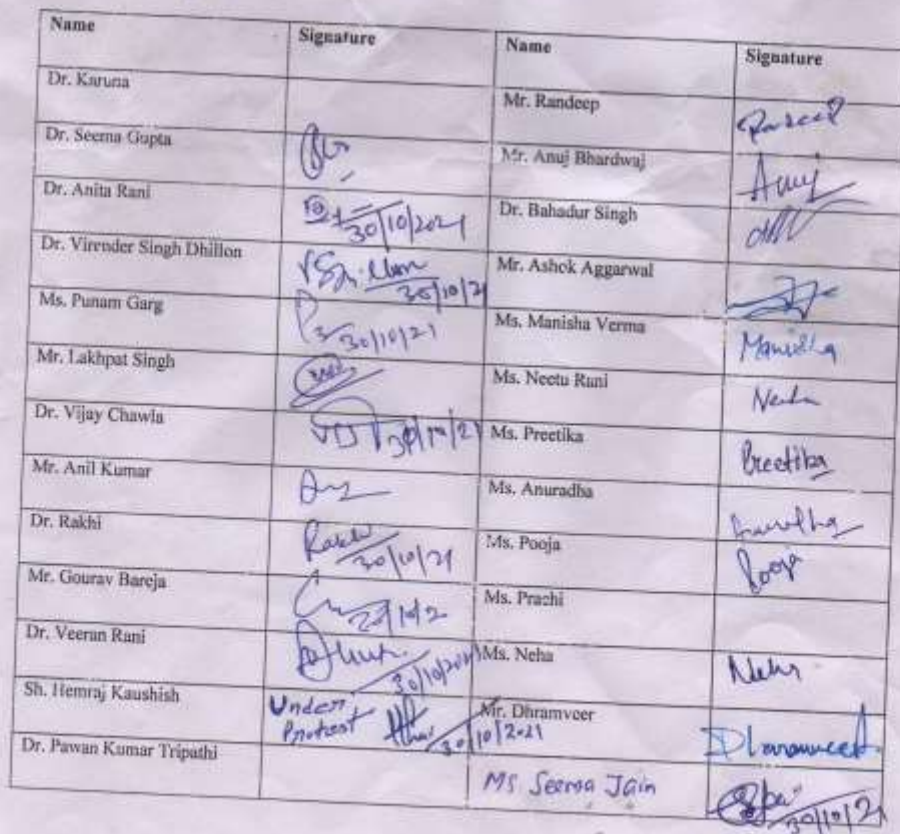 Name Signature Name Signature
Dr. Karuna Mr. Randeep
Dr. Seema Gupta Mr. Anuj Bhardwaj Anuj
Dr. Anita Rani 30/10/2021 Dr. Bahadur Singh
Dr. Virender Singh Dhillon VSDhillon 30/10/21 Mr. Ashok Aggarwal
Ms. Punam Garg 30/10/21 Ms. Manisha Verma Manisha
Mr. Lakhpat Singh Ms. Neetu Rani
Dr. Vijay Chawla 30/10/21 Ms. Preetika Preetika
Mr. Anil Kumar Ms. Anuradha Anuradha
Dr. Rakhi Rakhi 30/10/21 Ms. Pooja Pooja
Mr. Gourav Bareja 30/10/2 Ms. Prachi
Dr. Veeran Rani 30/10/2021 Ms. Neha Neha
Sh. Hemraj Kaushish Under Protest 30/10/2021 Mr. Dhramveer Dharamveer
Dr. Pawan Kumar Tripathi Ms Seema Jain 30/10/21